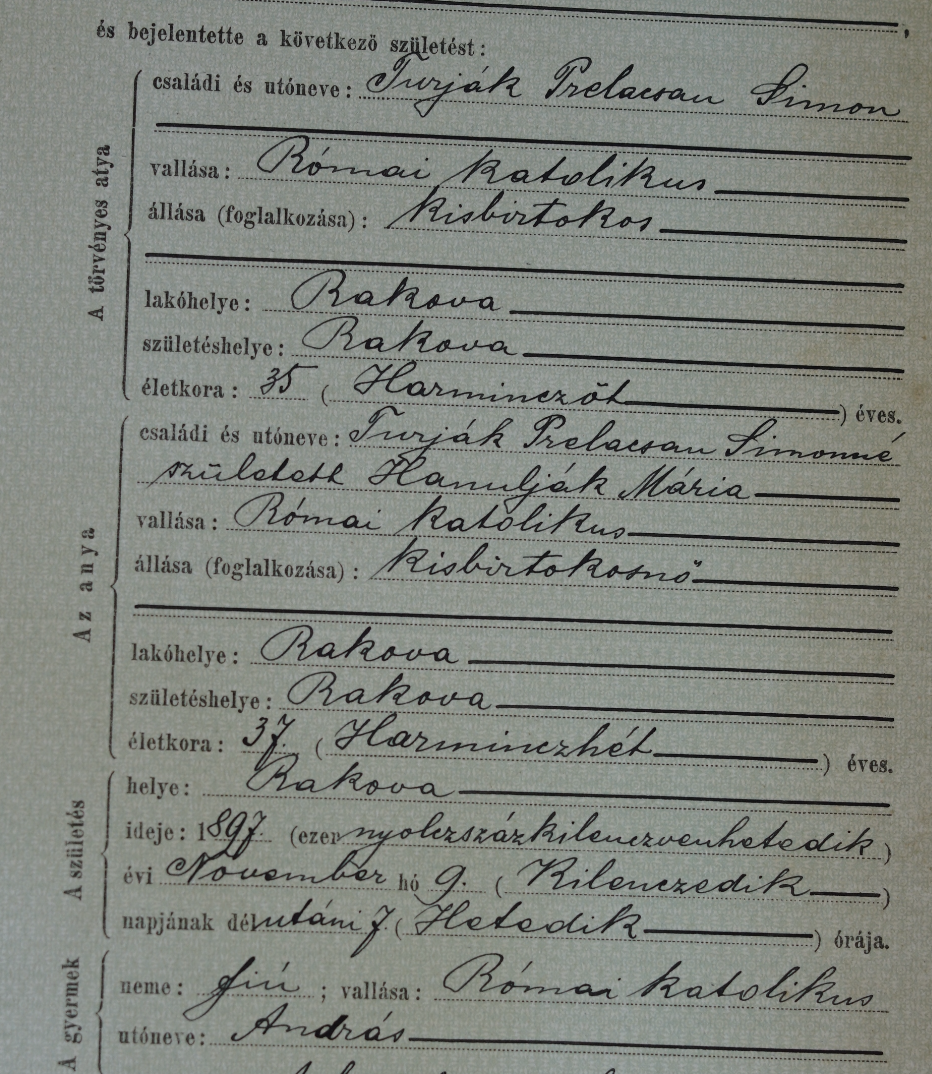 és bejelentette a következő születést:
A törvényes atya
családi és utóneve: Turják Prelacsan Simon
vallása: Római katolikus
állása (foglalkozása): kisbirtokos
lakóhelye: Rakova
születéshelye: Rakova
életkora: 35 (Harminczöt) éves.
Az anya
családi és utóneve: Turják Prelacsan Simonné
született Hanulják Mária
vallása: Római katolikus
állása (foglalkozása): kisbirtokosnő
lakóhelye: Rakova
születéshelye: Rakova
életkora: 37. (Harminczhét) éves.
A születés
helye: Rakova
ideje: 1897. (ezernyolczszázkilenczvenhetedik)
évi November hó 9. (Kilenczedik)
napjának délutáni 7 (Hetedik) órája.
A gyermek
neme: fiú; vallása: Római katolikus
utóneve: András